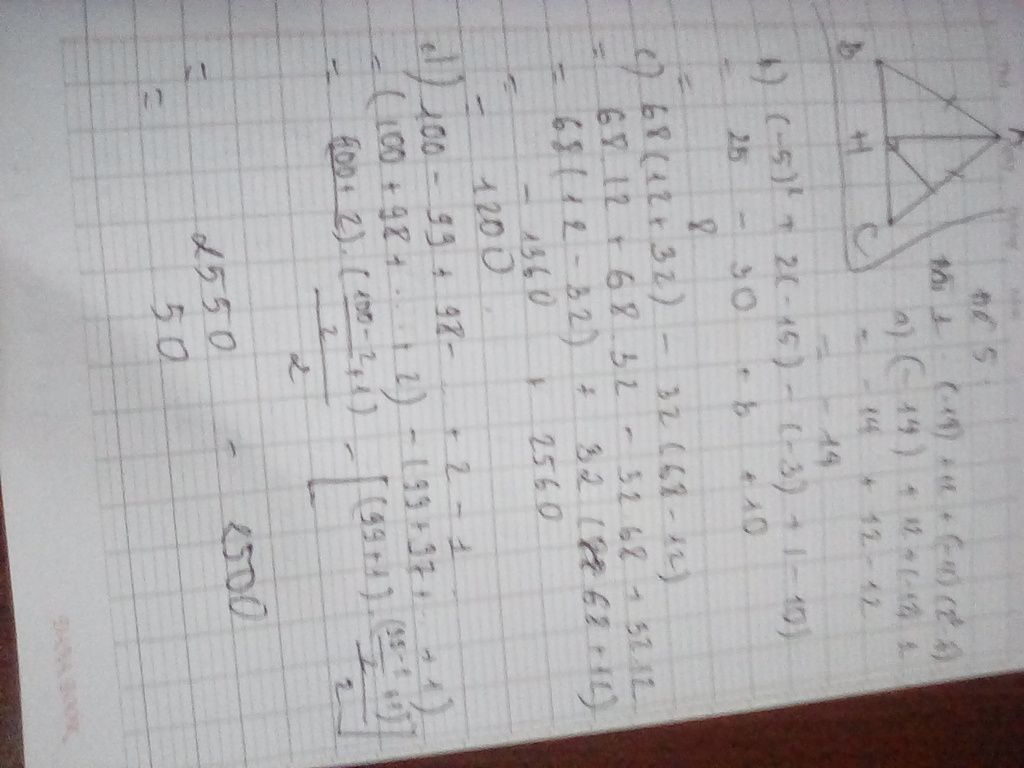 A
B
H
C
5
1
a) (-19) + 12 + (-12)
= -19 + 12 - 12
= -19
b) (-5)² + 2(-15) - (-3) + |-10|
= 25 - 30 + 3 + 10
= 8
c) 68(12+32) - 32(68-12)
= 68 12 + 68 32 - 32 68 + 32 12
= 68(12-32) + 32(68+12)
= -1360 + 2560
= 1200
d) 100 - 99 + 98 - ... + 2 - 1
= (100 + 98 + ... + 2) - (99 + 97 + ... + 1)
= (100+2).(100-2/2+1)/2 - [(99+1).(99-1/2+1)/2]
= 2550 - 2500
= 50